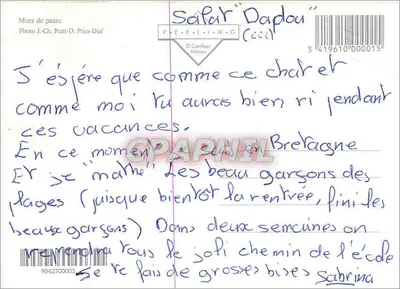 Mots de passe
Photo J.-Ch. Pratt-D. Pries-Diaf
FEELING
© Cartes d'Art
3 419610 000015
Salut "Dadou"
(ccc)
J'éspére que comme ce chat et
comme moi tu auras bien ri pendant
ces vacances.
En ce moment je suis en Bretagne
Et je "mathe" Les beau garçons des
plages (juisque bientôt la rentrée, fini les
beaux garçons) Dans deux semaines on
reprendra tous le joli chemin de l'école
Je te fais de grosses bises Sabrina
9942700003
CPAPHIL